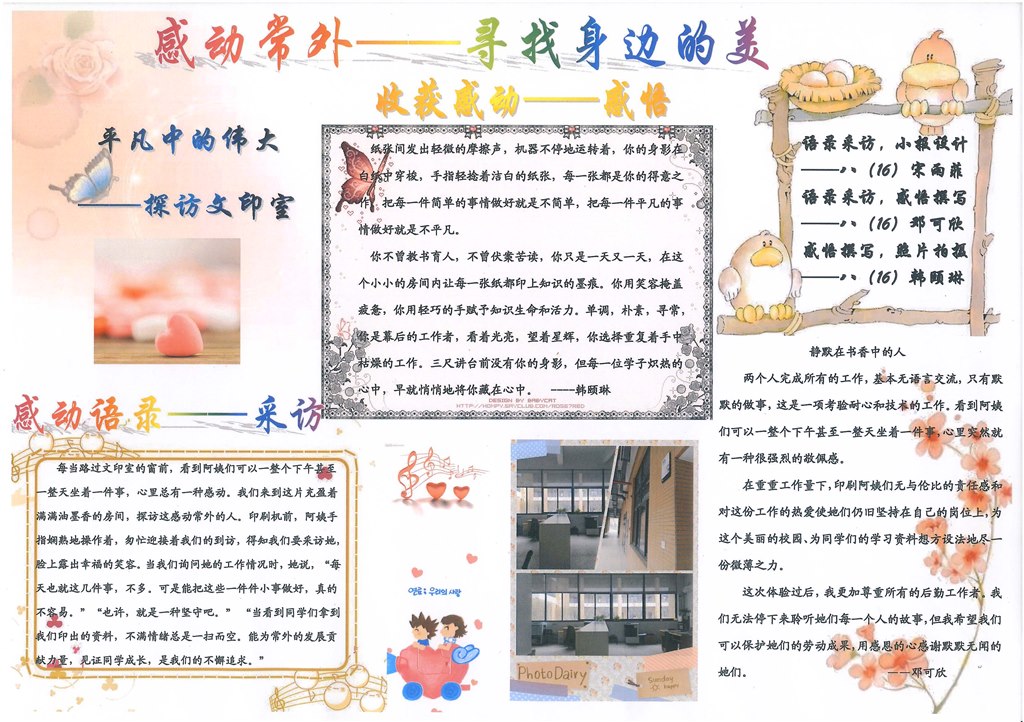 感动常外——寻找身边的美
收获感动——感悟
平凡中的伟大
——探访文印室
纸张间发出轻微的摩擦声，机器不停地运转着，你的身影在
白纸中穿梭，手指轻捻着洁白的纸张，每一张都是你的得意之
作。把每一件简单的事情做好就是不简单，把每一件平凡的事
情做好就是不平凡。
你不曾教书育人，不曾伏案苦读，你只是一天又一天，在这
个小小的房间内让每一张纸都印上知识的墨痕。你用笑容掩盖
疲惫，你用轻巧的手赋予知识生命和活力。单调，朴素，寻常，
你是幕后的工作者，看着光亮，望着星辉，你选择重复着手中
枯燥的工作。三尺讲台前没有你的身影，但每一位学子炽热的
心中，早就悄悄地将你藏在心中。 ----韩颐琳
DESIGN BY BABYCAT
语录采访，小报设计
——八（16）宋雨菲
语录采访，感悟撰写
——八（16）邓可欣
感悟撰写，照片拍摄
——八（16）韩颐琳
感动语录——采访
每当路过文印室的窗前，看到阿姨们可以一整个下午甚至
一整天坐着一件事，心里总有一种感动。我们来到这片充盈着
满满油墨香的房间，探访这感动常外的人。印刷机前，阿姨手
指娴熟地操作着，匆忙迎接着我们的到访，得知我们要采访她，
脸上露出幸福的笑容。当我们询问她的工作情况时，她说，“每
天也就这几件事，不多。可是能把这些一件件小事做好，真的
不容易。”“也许，就是一种坚守吧。”“当看到同学们拿到
我们印出的资料，不满情绪总是一扫而空。能为常外的发展贡
献力量，见证同学成长，是我们的不懈追求。”
PhotoDairy
Sunday
So happy
静默在书香中的人
两个人完成所有的工作，基本无语言交流，只有默
默的做事，这是一项考验耐心和技术的工作。看到阿姨
们可以一整个下午甚至一整天坐着一件事，心里突然就
有一种很强烈的敬佩感。
在重重工作量下，印刷阿姨们无与伦比的责任感和
对这份工作的热爱使她们仍旧坚持在自己的岗位上，为
这个美丽的校园、为同学们的学习资料想方设法地尽一
份微薄之力。
这次体验过后，我更加尊重所有的后勤工作者。我
们无法停下来聆听她们每一个人的故事，但我希望我们
可以保护她们的劳动成果，用感恩的心感谢默默无闻的
她们。 ——邓可欣